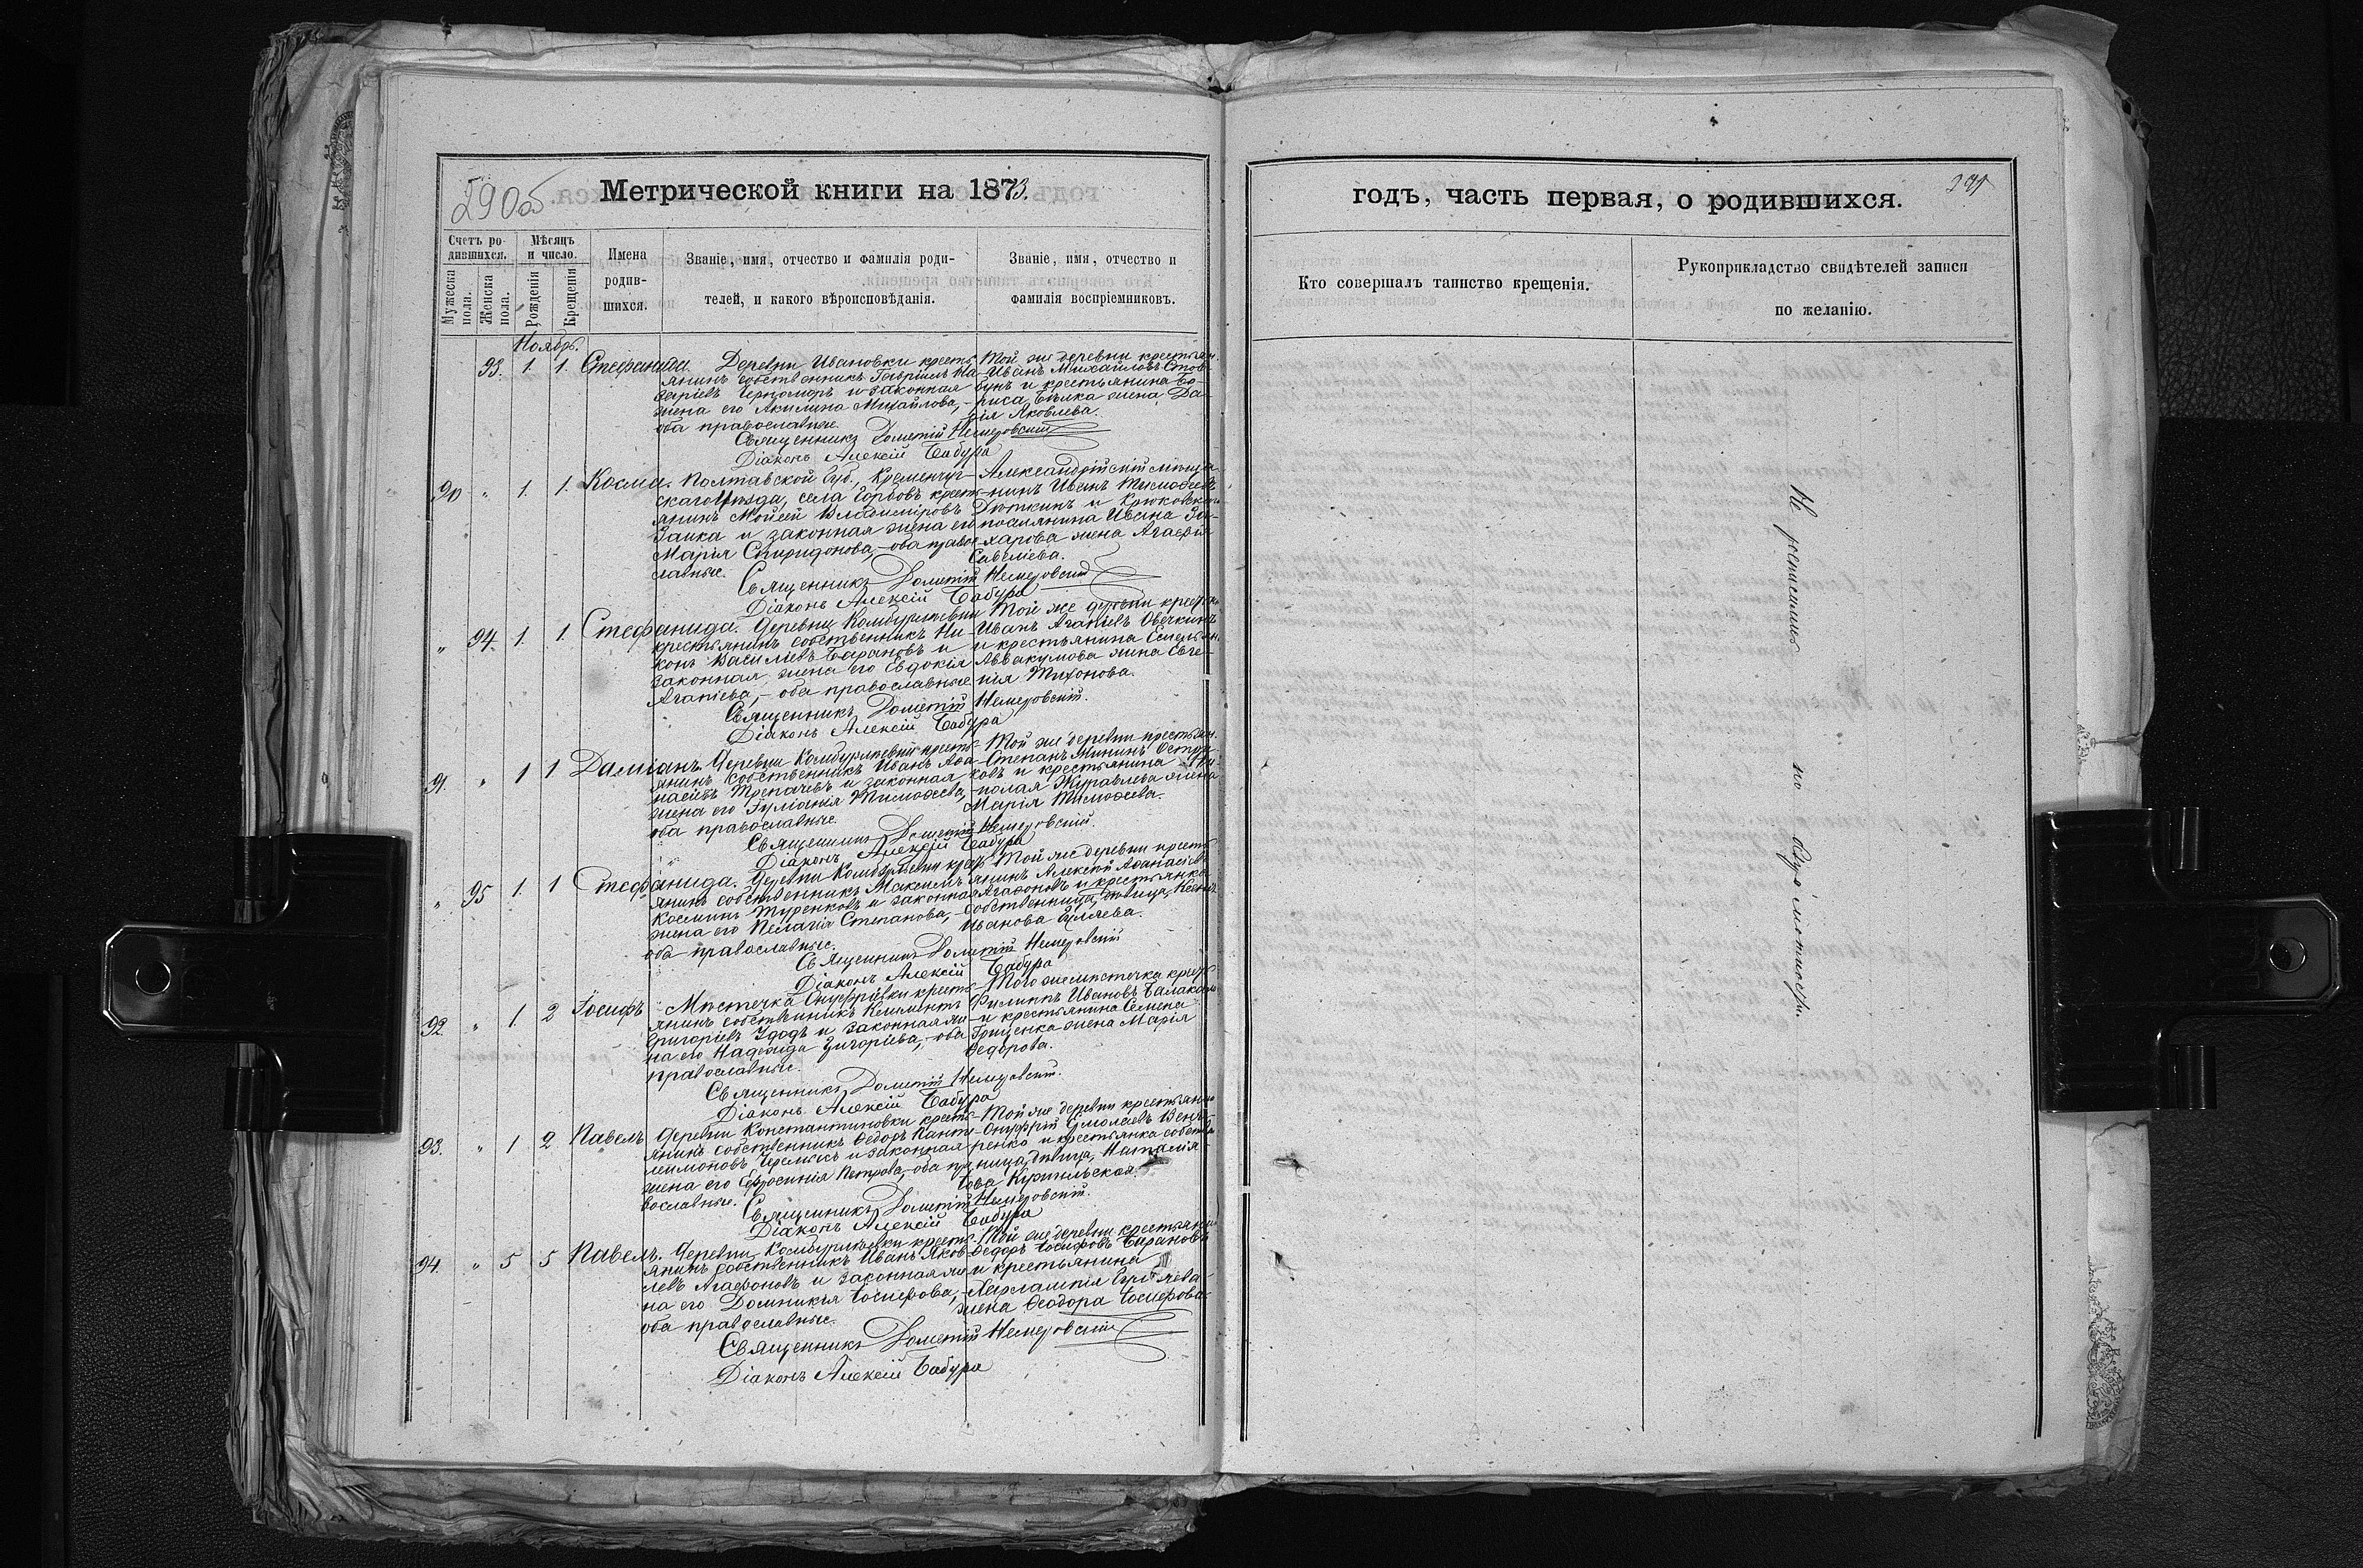 290об
Метрической книги на 1873.
Счетъ ро-
дившихся.
Мужеска
пола.
Женска
пола.
Мѣсяцъ
и число.
Рожденія
Крещенія
Имена
родив-
шихся.
Званіе, имя, отчество и фамилія роди-
телей, и какого вѣроисповѣданія.
Званіе, имя, отчество и
фамилія воспріемниковъ.
Ноябрь.
93. 1. 1. Стефанида.
Деревни Ивановки кресть-
янинъ собственникъ Гавріилъ На-
заріевъ Черноморъ и законная
жена его Акилина Михайлова,-
оба православные.
Той же деревни крестьян.
Иванъ Михайловъ Стов-
бунъ и крестьянина Бо-
риса Бѣлка жена Да-
рія Яковлева.
Священникъ Дометій Немеровскій
Діаконъ Алексій Бабура
90 " 1. 1. Косма.
Полтавской Губ., Кременчуг-
скаго Уѣзда, села Горбовъ кресть-
янинъ Мойсей Владиміровъ
Заика и законная жена его
Марія Спиридонова,-оба право-
славные.
Александрійскій мѣща-
нинъ Иванъ Тимофеевъ
Дюткинъ и Крюковскаго
поселянина Ивана За-
харова жена Агафія
Савеліева.
Священникъ Дометій Немеровскій
Діаконъ Алексій Бабура
" 94. 1. 1. Стефанида.
Деревни Камбурлѣевки
крестьянинъ собственникъ Ни-
конъ Василіевъ Барановъ и
законная жена его Евдокія
Агапіева,- оба православные.
Той же деревни крестьян.
Иванъ Агапіевъ Овечкинъ
и крестьянина Емельян.
Аввакумова жена Евге-
нія Тихонова.
Священникъ Дометій Немеровскій.
Діаконъ Алексій Бабура
91. " 1 1 Даміанъ.
Деревни Камбурлѣевки кресть-
янинъ собственникъ Иванъ Афа-
насіевъ Трепачевъ и законная
жена его Іуліанія Тимофеева,
оба православные.
Той же деревни крестьян.
Степанъ Мининъ
ковъ и крестьянина
полая Журавлева жена
Марія Тимофеева.
Священникъ Дометій Немеровскій
Діаконъ Алексій Бабура
" 95 1. 1 Стефанида.
Деревни Камбурлѣевки крест-
янинъ собственникъ Максимъ
Косминъ Туренковъ и законная
жена его Пелагія Степанова,-
оба православные.
Той же деревни кресть-
янинъ Алексій Афанасіевъ
Агафоновъ и крестьянка
собственница, дѣвица, Ксенія
Иванова Гуляева.
Священникъ Дометій Немеровскій
Діаконъ Алексій Бабура
92. " 1. 2 Іосифъ
Мѣстечка Онуфріевки кресть-
янинъ собственникъ Климентъ
Григоріевъ Удодъ и законная же-
на его Надежда Григоріева,-оба
православные.
Того же мѣстечка крест-
Филиппъ Ивановъ
и крестьянина Семена
Гриценка жена Марія
Федорова.
Священникъ Дометій Немеровскій.
Діаконъ Алексій Бабура
93. " 1 2 Павелъ
Деревни Константиновки кресть-
янинъ собственникъ Федоръ Панте-
леимоновъ Черемисъ и законная
жена его Евфросинія Петрова,-оба пра-
вославные.
Той же деревни крестьянинъ
Онуфрій Ермолаевъ
ренко и крестьянка собствен-
ница, дѣвица, Наталія
Священникъ Дометій Немеровскій.
Діаконъ Алексій Бабура
94. " 5 5 Павелъ.
Деревни Камбурлѣевки кресть-
янинъ собственникъ Иванъ Яков-
левъ Агафоновъ и законная же-
на его Домникія Іосифова,-
оба православные.
Той же деревни крестьянинъ
Федоръ Іосифовъ Барановъ
и крестьянина
Харлампія
жена Феодора Іосифова.
Священникъ Дометій Немеровскій
Діаконъ Алексій Бабура
годъ, часть первая, о родившихся.
291
Кто совершалъ таинство крещенія.
Рукоприкладство свидѣтелей записи
по желанію.
Не росписались по безграмотности.